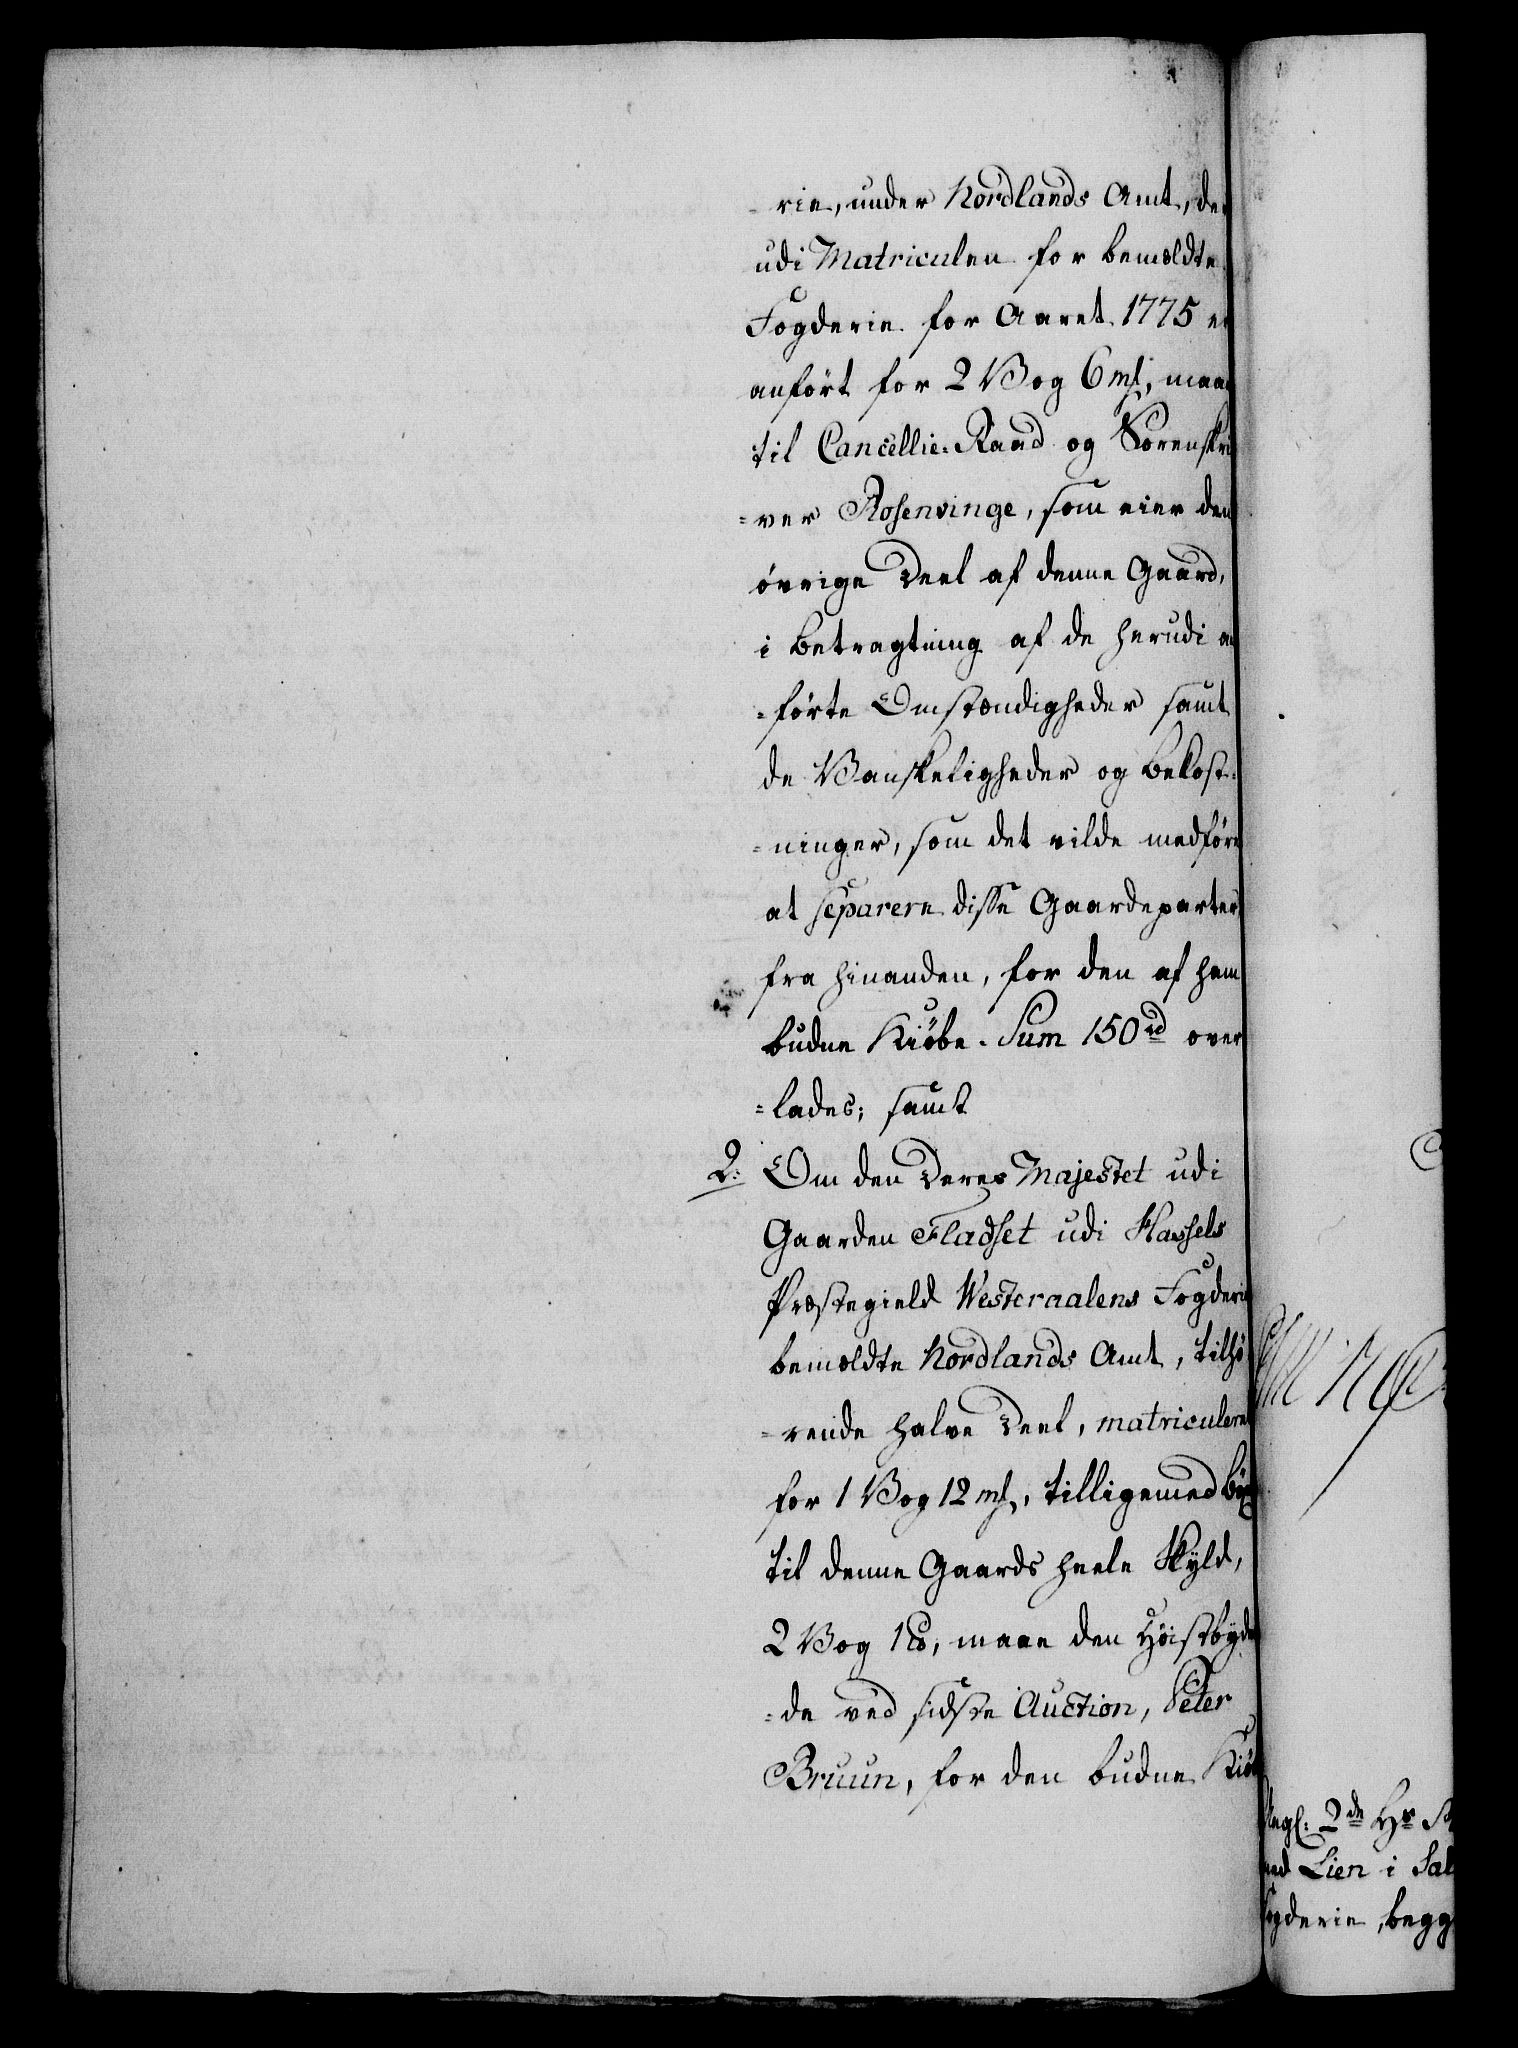 -rie, under Nordlands Amt, de
udi Matriculen for bemeldte
Fogderie for Aaret 1775 e
anført for 2 Vog 6 mk, maa
til Cancellie-Raad og Sorenskri
=ver Rosenvinge, som eier den
øvrige Deel af denne Gaard,
i Betragtning af de herudi a
=førte Omstændigheder samt
de Vanskeligheder og Bekost-
=ninger, som det vilde medføre
at separere disse Gaardeparter
fra hinanden, for den af ham
budne Kiøbe-Sum 150 rd over
=lades; samt
2: Om den Deres Majestet udi
Gaarden Fladset udi Hassels
Præstegield Westeraalens Fogderie
bemeldte Nordlands Amt, tilhø
=rende halve Deel, matriculere
for 1 Vog 12 mk, tilligemed Byx
til denne Gaards heele Skyld,
2 Vog 1 , maae den Høistbyde
=de ved sidste Auction, Peter
Bruun, for den budne Kiø
2de Hr
Lien i Sal
gderie, begg